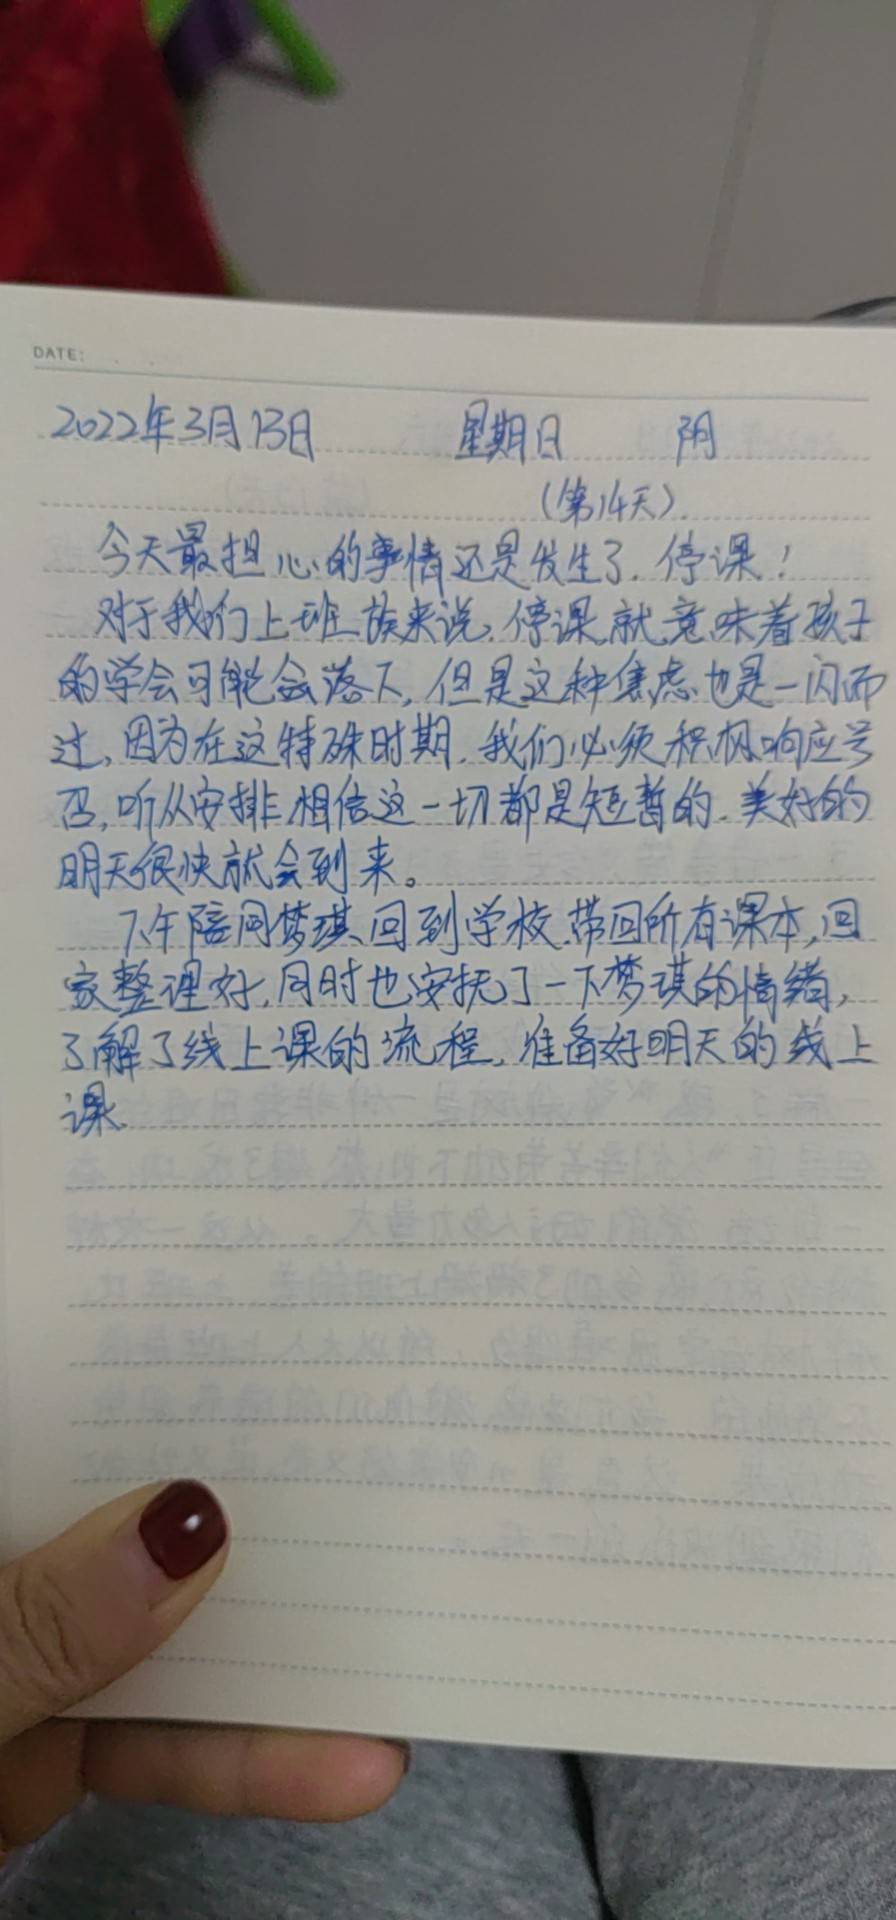 DATE:
2022年3月13日 星期日 阴
(第14天).
今天最担心的事情还是发生了.停课!
对于我们上班族来说,停课就意味着孩子
的学会可能会落下,但是这种焦虑也是一闪而
过,因为在这特殊时期.我们必须积极响应号
召,听从安排,相信这一切都是短暂的.美好的
明天很快就会到来。
下午陪同梦琪回到学校.带回所有课本,回
家整理好,同时也安抚了一下梦琪的情绪,
了解了线上课的流程,准备好明天的线上
课.